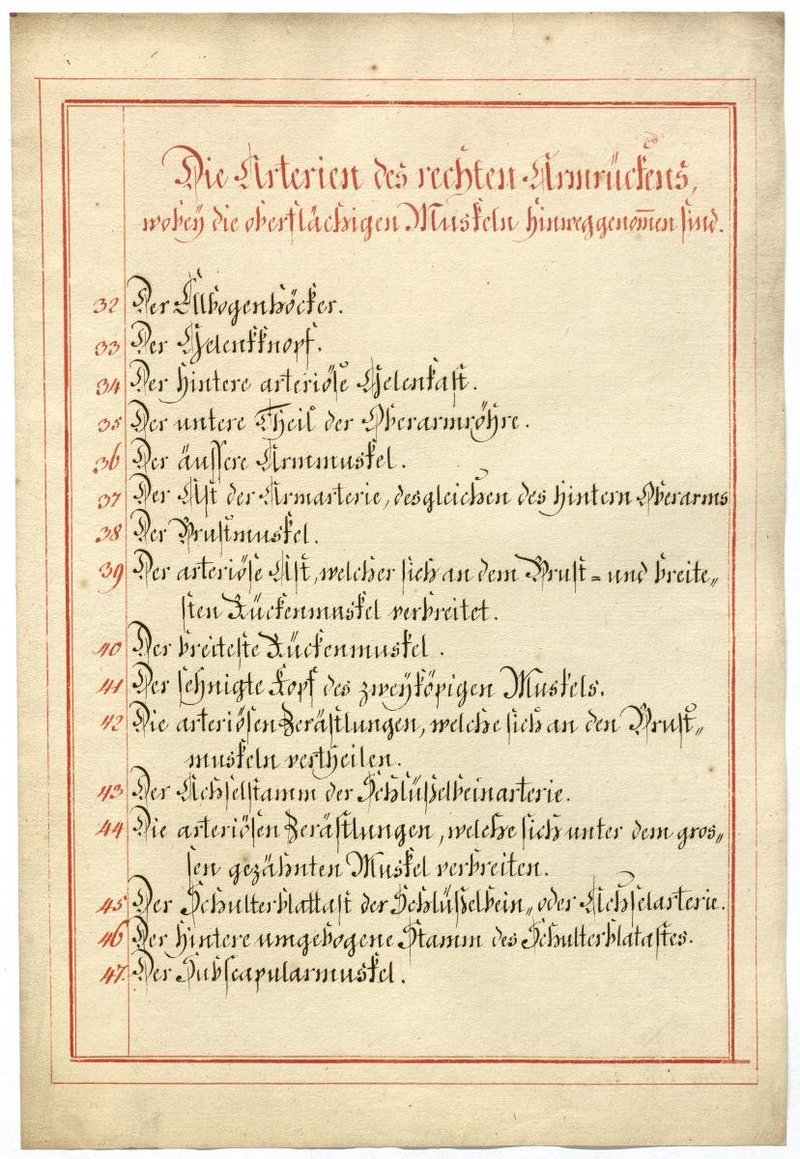 Die Arterien des rechten Armrückens,
wobey die oberflächigen Muskeln hinweggenom̅en sind.
32 Der Ellbogenhöcker.
33 Der Gelenkknopf.
34 Der hintere arteriöse Gelenkast.
35 Der untere Theil der Oberarmröhre.
36 Der äussere Armmuskel.
37 Der Ast der Armarterie, desgleichen des hintern Oberarms
38 Der Brustmuskel.
39 Der arteriöse Ast, welcher sich an dem Brust= und breite„
sten Rückenmuskel verbreitet.
40 Der breiteste Rückenmuskel.
41 Der sehnigte Kopf des zweyköpigen Muskels.
42 Die arteriösen Zerästlungen, welche sich an den Brust„
muskeln vertheilen.
43 Der Achselstamm der Schlüßelbeinarterie.
44 Die arteriösen Zerästlungen, welche sich unter dem gros„
sen gezähnten Muskel verbreiten.
45 Der Schulterblattast der Schlüßelbein„ oder Achselarterie.
46 Der hintere umgebogene Stamm des Schulterblatastes.
47. Der Subscapularmuskel.